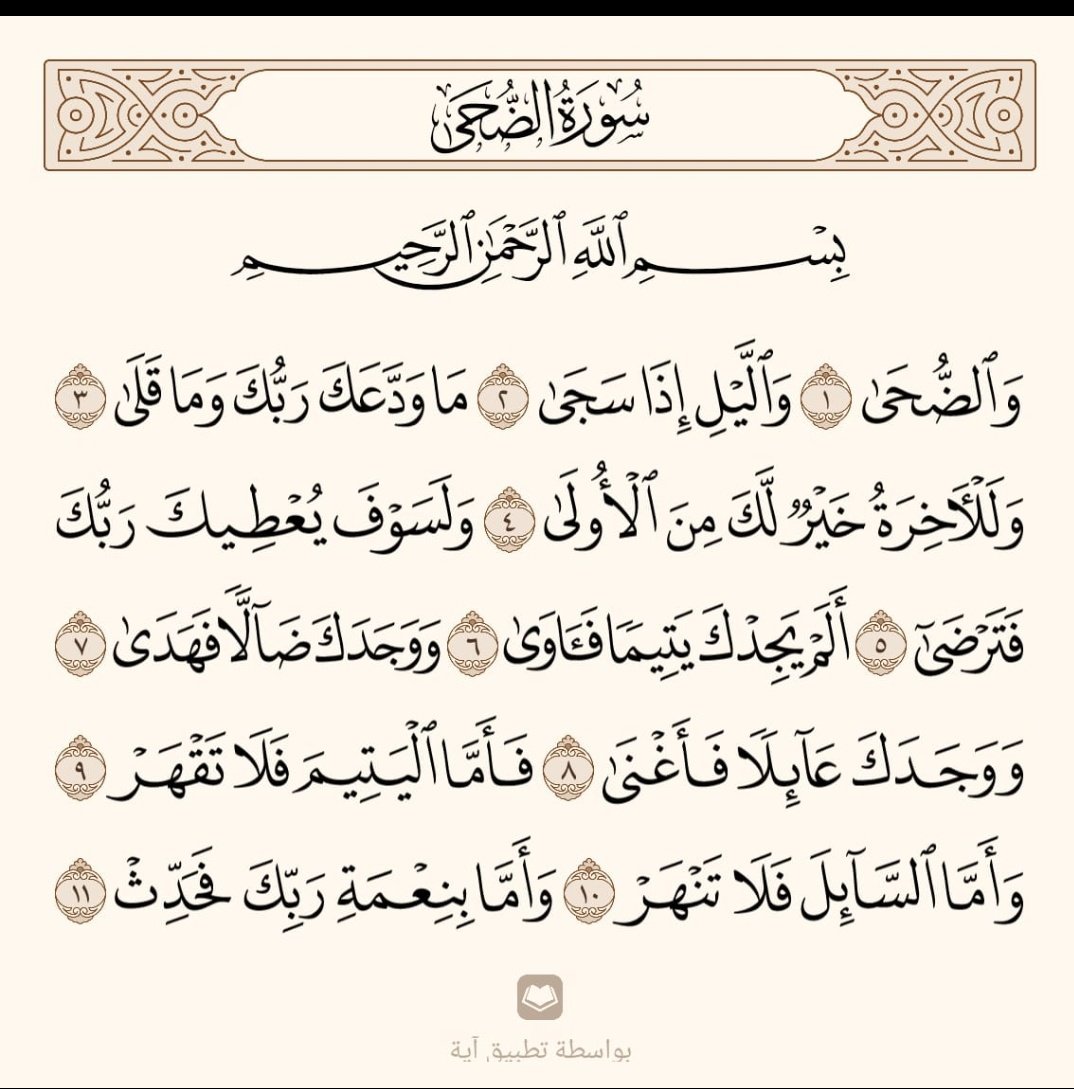 سُورَةُ الضُّحَىٰ
بِسْمِ ٱللَّهِ ٱلرَّحْمَٰنِ ٱلرَّحِيمِ
وَٱلضُّحَىٰ ١ وَٱلَّيْلِ إِذَا سَجَىٰ ٢ مَا وَدَّعَكَ رَبُّكَ وَمَا قَلَىٰ ٣
وَلَلْأَخِرَةُ خَيْرٌ لَّكَ مِنَ ٱلْأُولَىٰ ٤ وَلَسَوْفَ يُعْطِيكَ رَبُّكَ
فَتَرْضَىٰٓ ٥ أَلَمْ يَجِدْكَ يَتِيمًا فَـَٔاوَىٰ ٦ وَوَجَدَكَ ضَآلًّا فَهَدَىٰ ٧
وَوَجَدَكَ عَآئِلًا فَأَغْنَىٰ ٨ فَأَمَّا ٱلْيَتِيمَ فَلَا تَقْهَرْ ٩
وَأَمَّا ٱلسَّآئِلَ فَلَا تَنْهَرْ ١٠ وَأَمَّا بِنِعْمَةِ رَبِّكَ فَحَدِّثْ ١١
بواسطة تطبيق آية